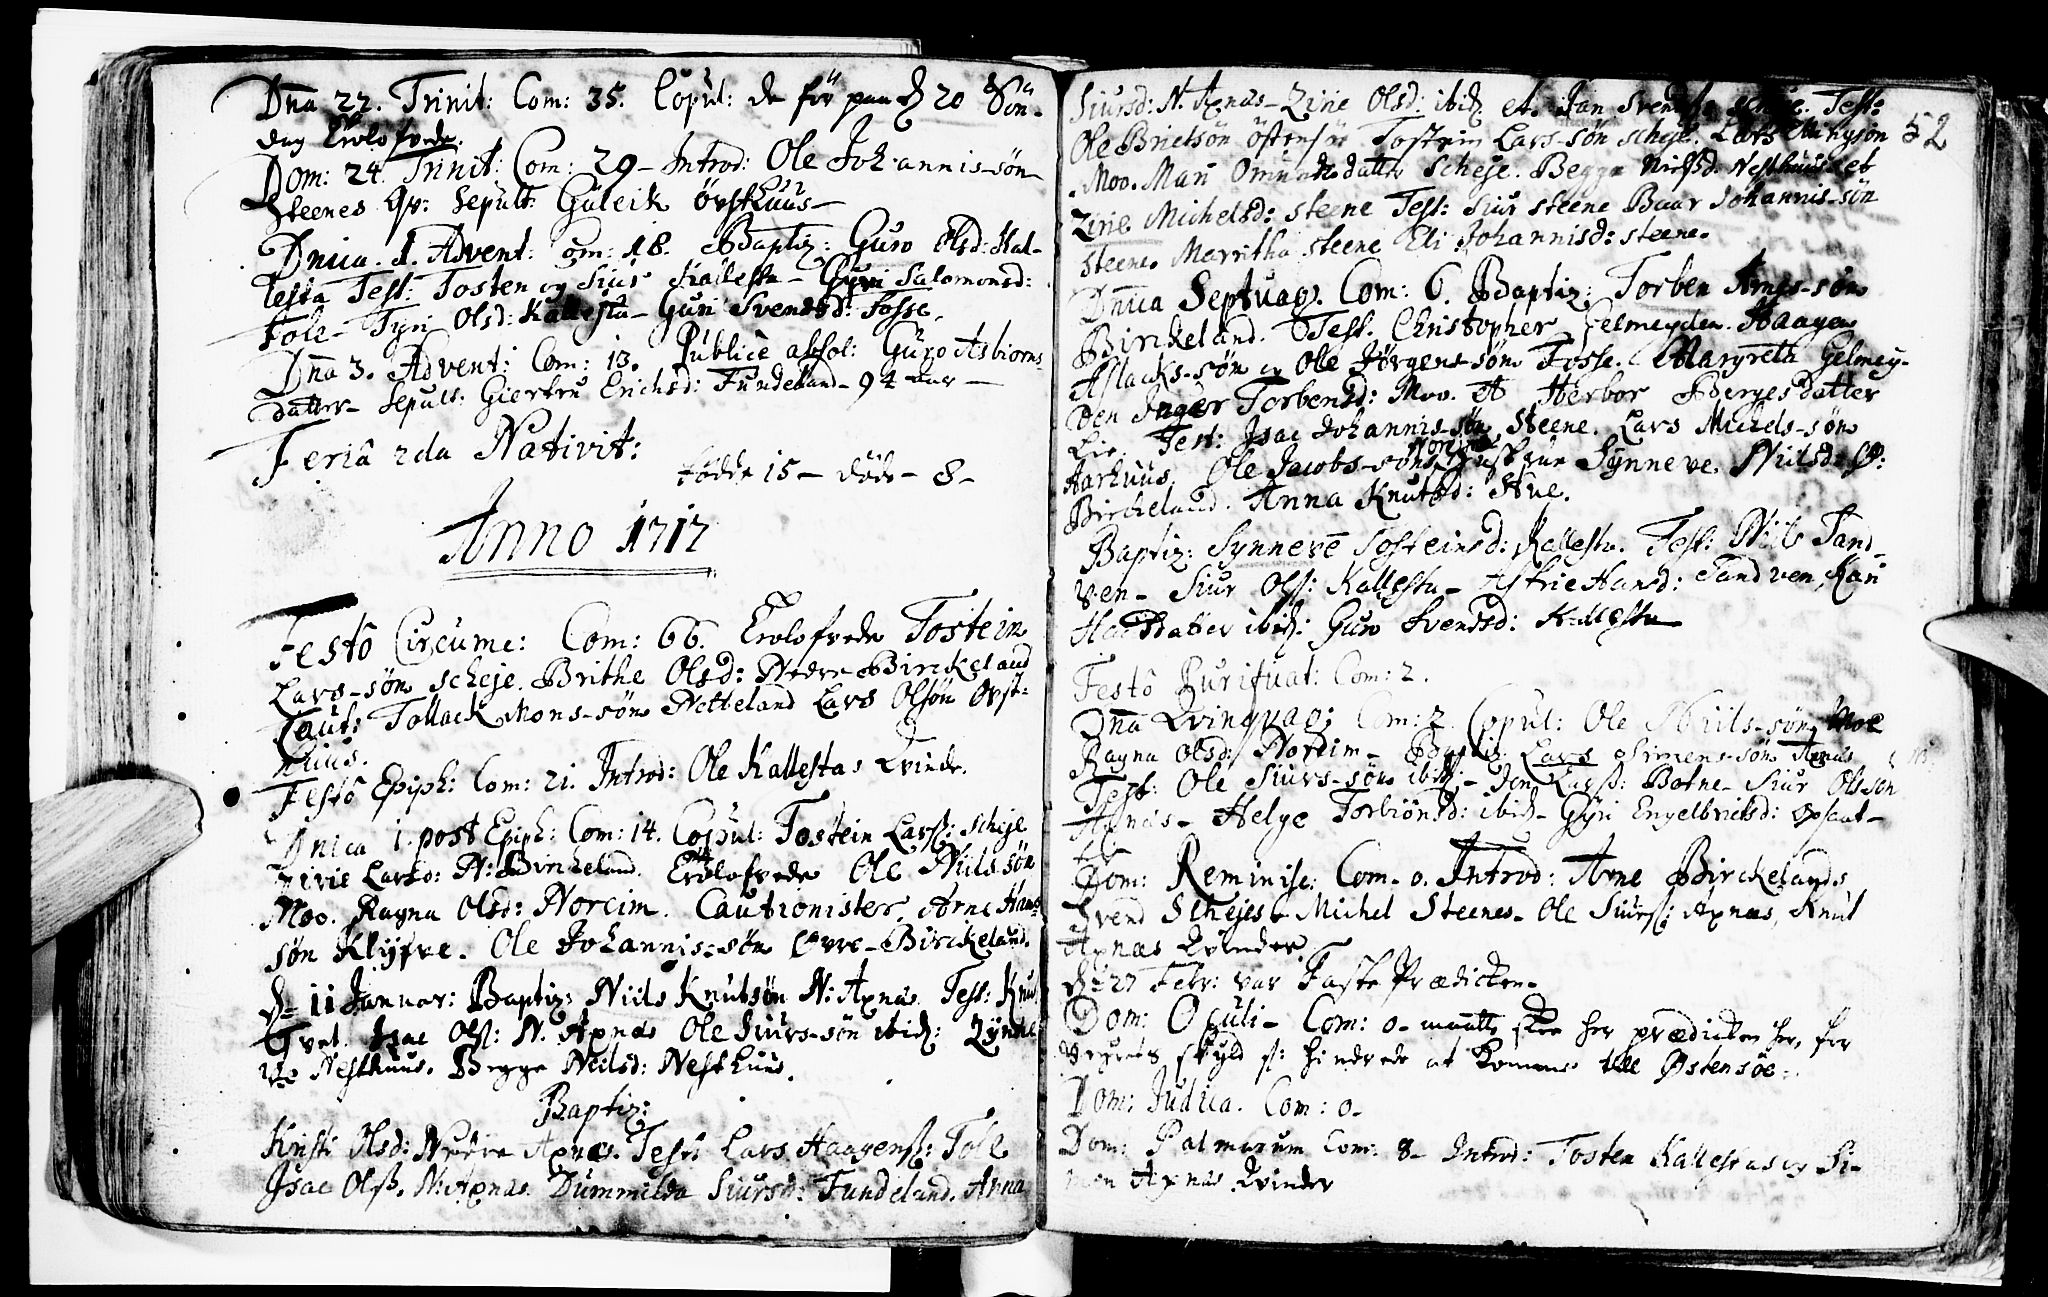 Dna 22. Trinit: Com: 35. Copul: de för paa d 20 Søn-
dag Trolofvede.
Dom: 24 Trinit: Com: 29 - Introd: Ole Johannis-søn
Steenes Qv: Sepult: Guleik Övsthuus -
Dnica. 1. Advent: Com: 18. Baptiz: Guro Olsd: Kal-
lesta Test: Tosten og Siur Kallesta - Gyri Salomonsd:
Tole - Tyri Olsd: Kallesta - Guri Svendsd: Fosse.
Dna 3. Advent: Com: 13. Publice absol: Guro Asbiorns
datter - Sepult: Giertru Erichsd: Fundeland - 94 aar -
Feria 2da Nativit:
fødde 15 - døde - 8 -
Anno 1717
Festo Circume: Com: 66. Trolofvede Tostein
Lars-søn Scheje. Brithe Olsd: Nedre Birckeland
Caut: Tollack Mons-søn Netteland Lars Olsøn Øvst-
huus.
Festo Epiph: Com: 21. Introd: Ole Kallestas Qvinde.
Dnica 1. post Epiph: Com: 14. Copul: Tostein Larss: Scheje
Larsd: N: Birckeland. Trolofvede Ole Niils-søn
Moo. Ragna Olsd: Noreim. Cautionister, Arne Hans-
søn Klyfve. Ole Johannis-søn Øvre-Birckeland.
d 11 Januar: Baptiz: Niils Knutsøn N: Axnæs. Test: Knut
Tvet. Isac Ols: N. Axnæs Ole Siurs-søn ibid: Zynne
ve Nesthuus. Begge Nielsd: Nesthuus.
Baptiz:
Kristi Olsd: Nedre Axnæs. Test: Lars Haagens: Tole
Isac Olss. N: Axnæs. Dummilda Siursd: Fundeland. Anna
52
Siursd: N. Axnæs - Zirie Olsd: ibid et Jan Svends: Test:
Ole Brietsøn Østensøe Tostein Lars-søn Scheje. Lars
Moo. Mari Omundsdatter Scheje. Begge Nielsd: Nesthuus et
Zirie Michelsd: Steene Test: Siur Steene Baar Johannis-søn
Steene. Marritha Steene Eli Johannisd: Steene.
Dnica Septuag. Com: 6. Baptiz: Torben Arnes-søn
Birckeland. Test. Christopher Gelmeyden. Haagen
Aslacks-søn og Ole Jørgens-søn Fosse. Margreta Gelmey-
den Inger Torbensd: Moo. et Herbor Bergesdatter
Lie. Test: Isac Johannis-søn Steene. Lars Michels-søn
Aarhuus. Ole Jacobs-søns Noreims Hustrue Synneve Niilsd: Ø:
Birckeland. Anna Knutsd: Hue.
Baptiz: Synneve Tosteinsd: Kallesta. Test: Niils Tand-
ven - Siur Ols: Kallesta - Astrie Hansd: Tandven, Kari
datter ibid: Guro Svendsd: Kallesta
Festo Purificat: Com: 2.
Dna Qvinqvag: Com: 2 Copul: Ole Niils-søn Moe
Ragna Olsd: Noreim - Baptiz: Lars Simens-søn Axnæs
Test: Ole Siurs-søn ibid: - Jon Larss: Botne - Siur Olssøn
Axnæs - Helge Torbiønsd: ibid - Gyri Engelbrictsd: Opsant -
Dom: Reminisc: Com - 0. Introd: Arne Birckelands
Svend Schejes - Michel Steenes - Ole Siurs: Axnæs, Knut
Axnæs Qvinder.
d 27 Febr: var Faste Prædicken -
Dom: Oculi - Com: 0 - maatte skee her prædicken her, for
Veyrets skyld hindrede at komme till Østensøe.
Dom: Judica. Com: 0 -
Dom: Palmarum Com: 8 - Introd: Tosten Kallestas og Si-
men Axnæs Qvinder